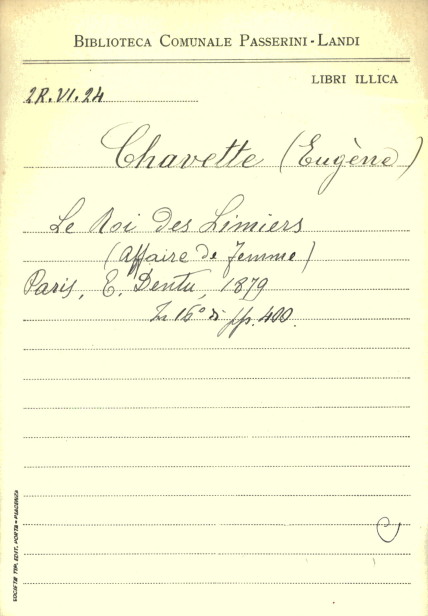 BIBLIOTECA COMUNALE PASSERINI-LANDI
LIBRI ILLICA
2R.VI.24
Chavette (Eugène)
Le Roi des Limiers
(Affaire de femme)
Paris, E. Dentu, 1879
In 16° di pp. 400.
SOCIETÀ TIP. EDIT. PORTA - PIACENZA
C